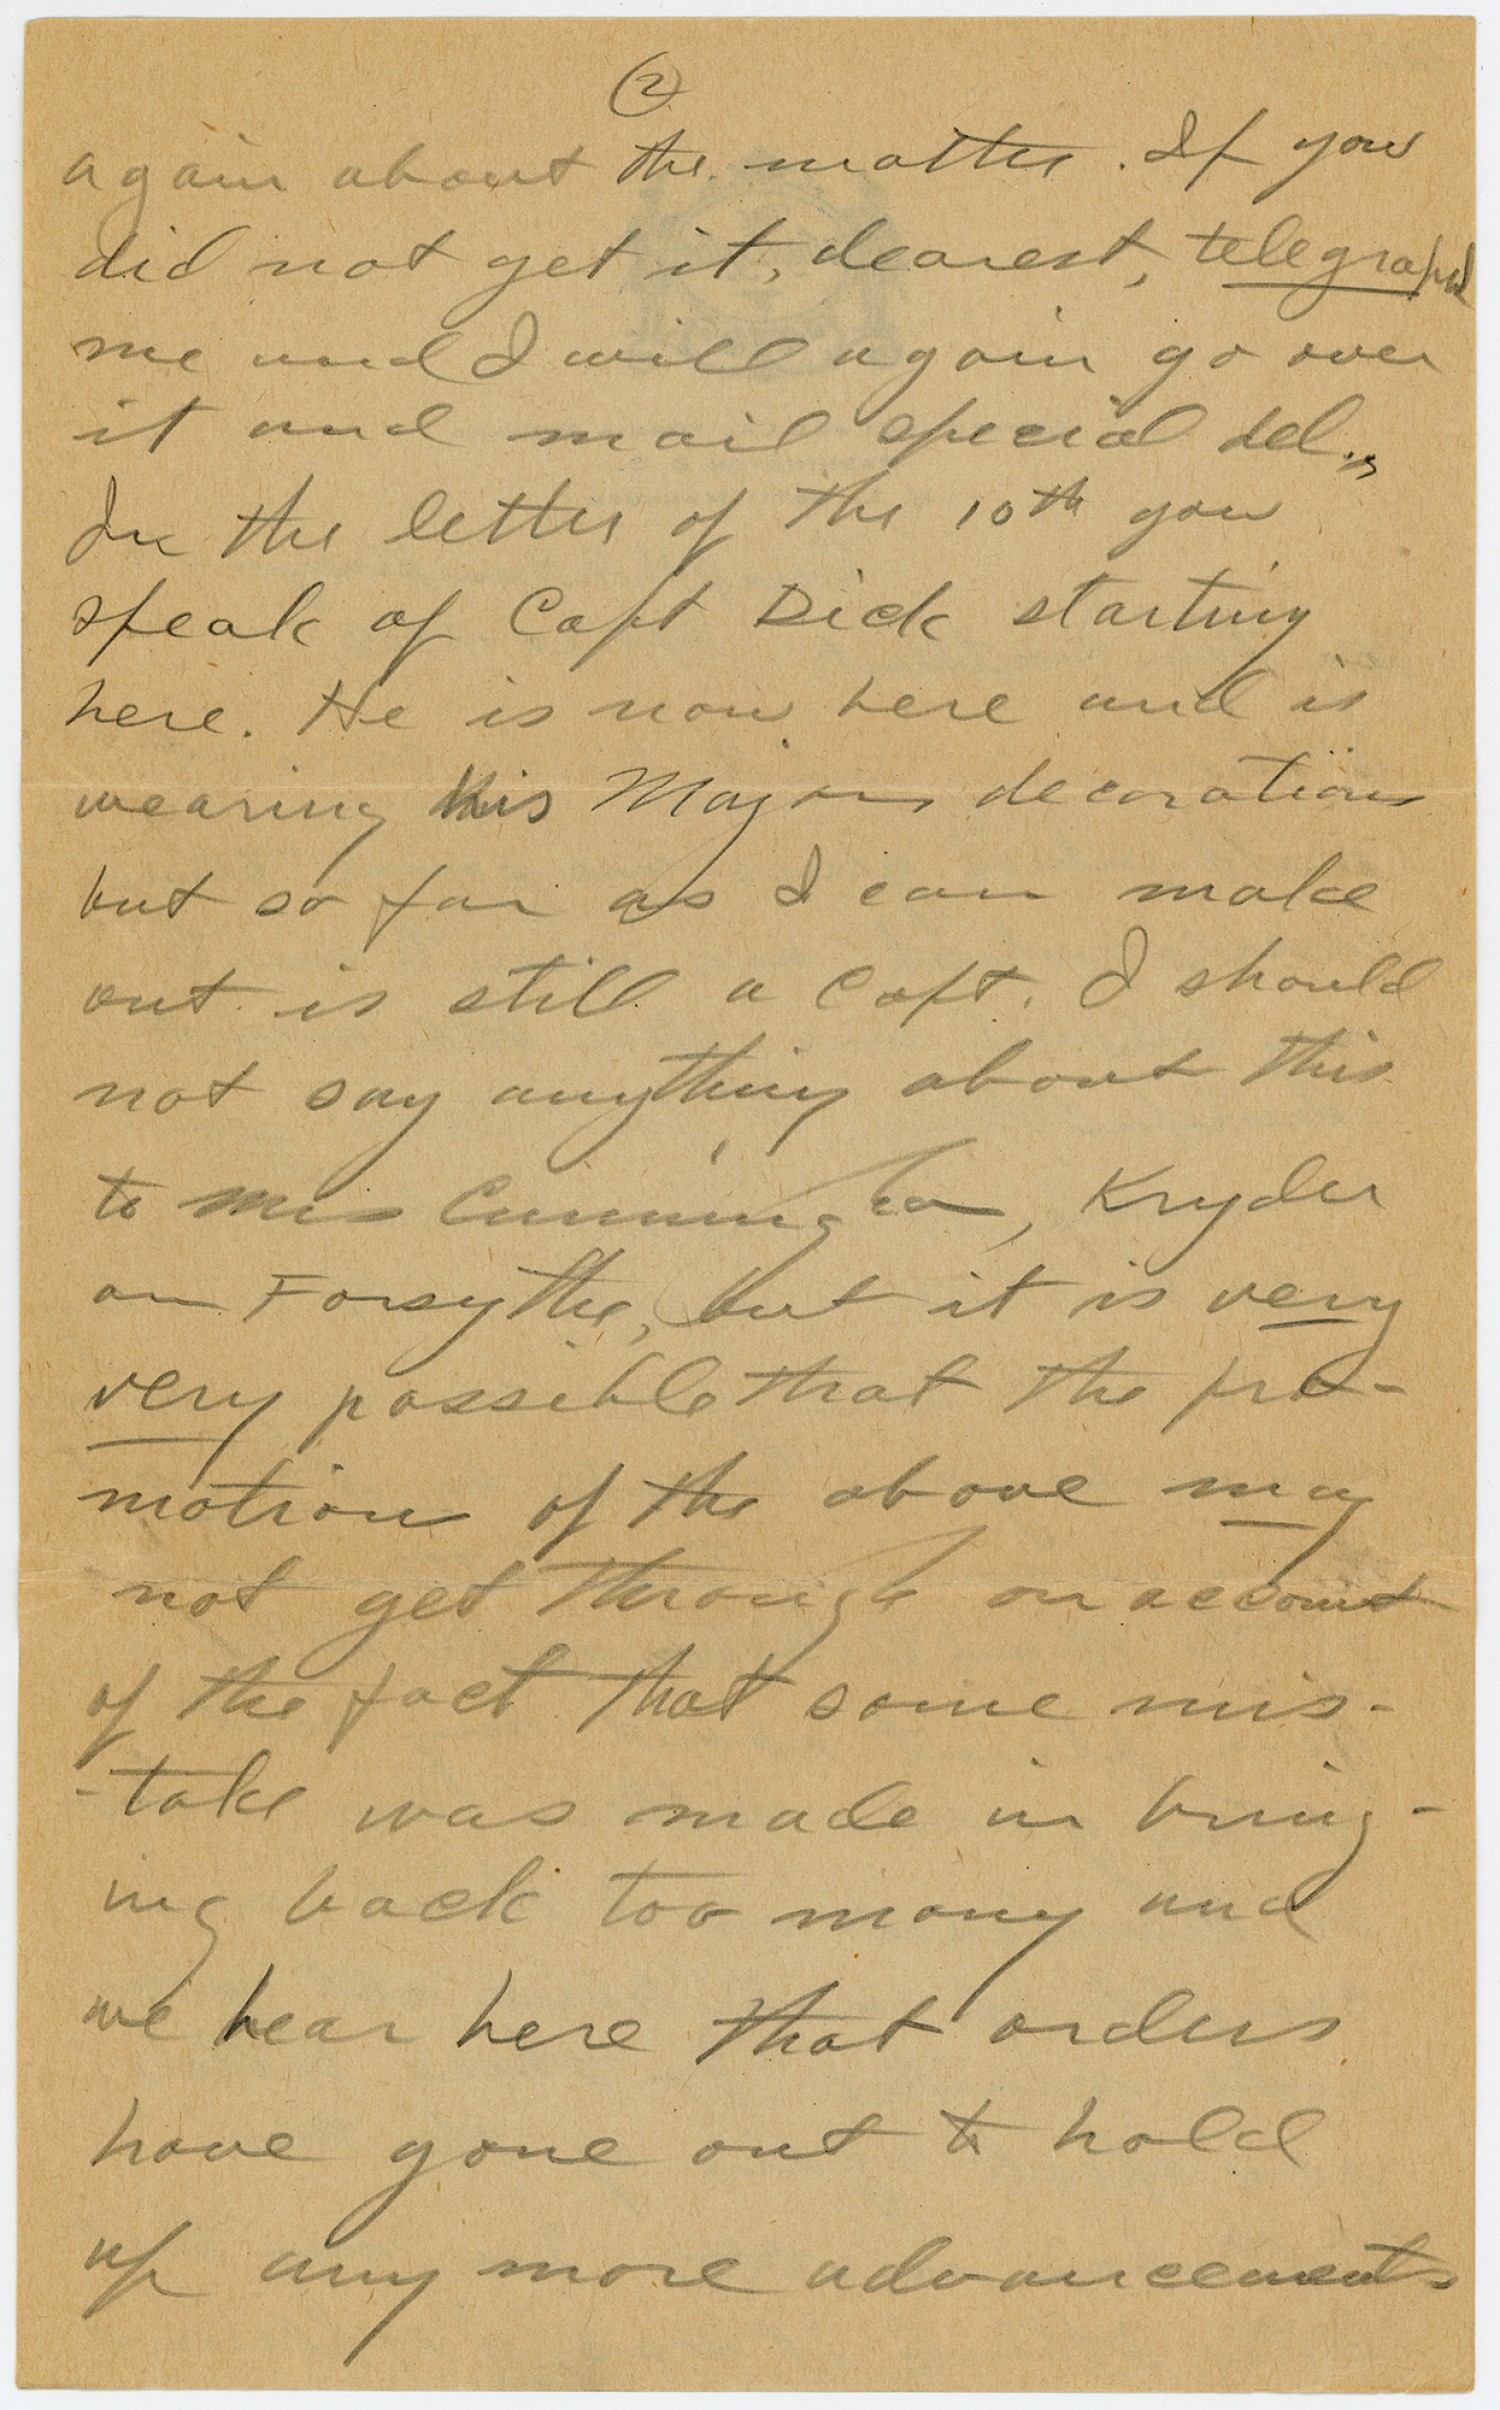 (2)
again about the matter. If you
did not get it, dearest, telegraph
me and I will again go over
it and mail special del.,
In the letter of the 10th you
speak of Capt Dick starting
here. He is now here and is
wearing his Majors decorations
but so far as I can make
out is still a Capt. I should
not say anything about this
to Mrs Cunningham, Kryder
or Forsythe, but it is very
very possible that the pro-
motion of the above may
not get through on account
of the fact that some mis-
-take was made in bring-
ing back too many and
we hear here that orders
have gone out to hold
up any more advancements